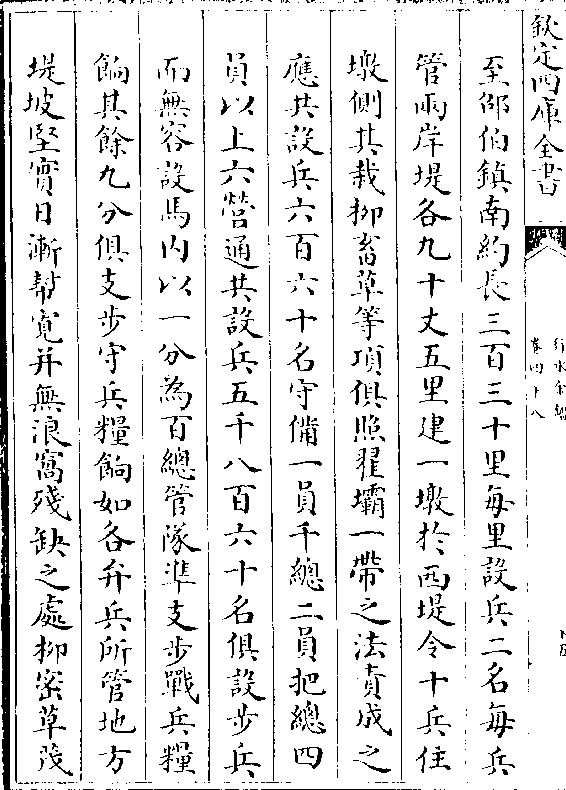 欽定四庫全書
行水金鑑
卷四十八
至邵伯鎮南約長三百三十里每里設兵二名每兵
管兩岸堤各九十丈五里建一墩於西堤令十兵住
墩側其栽柳畜草等項俱照翟壩一帶之法責成之
應共設兵六百六十名守備一員千總二員把總四
員以上六營通共設兵五千八百六十名俱設步兵
而無容設馬內以一分為百總管隊準支步戰兵糧
餉其餘九分俱支步守兵糧餉如各弁兵所管地方
堤坡堅實日漸幫寬并無浪窩殘缺之處柳密草茂